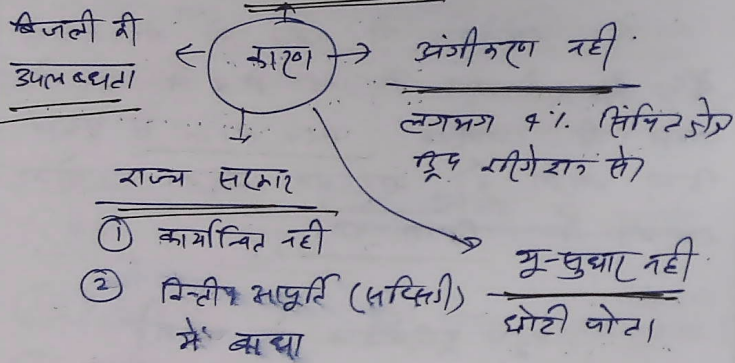 बिजली की
उपलब्धता
कारण
अंगीकरण नहीं
लगभग 4% सिंचित क्षेत्र
ड्रिप सिंगेशन से)
राज्य सरकार
① कार्यान्वित नहीं
② वित्तीय आपूर्ति (सब्सिडी)
में बाधा
भू-सुधार नहीं
छोटी जोत।